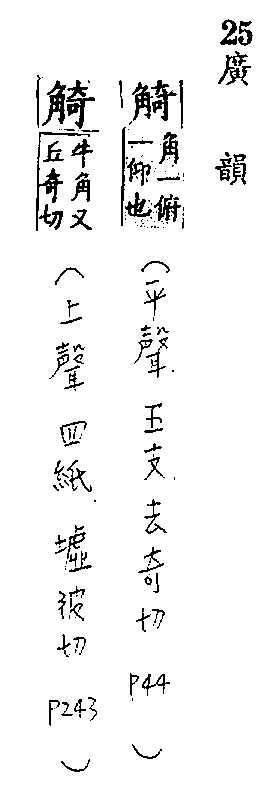 25
廣韻
觭 角一俯一仰也
(平聲 五支 去奇切 P44)
觭 牛角又丘奇切
(上聲 四紙 墟彼切 P243)